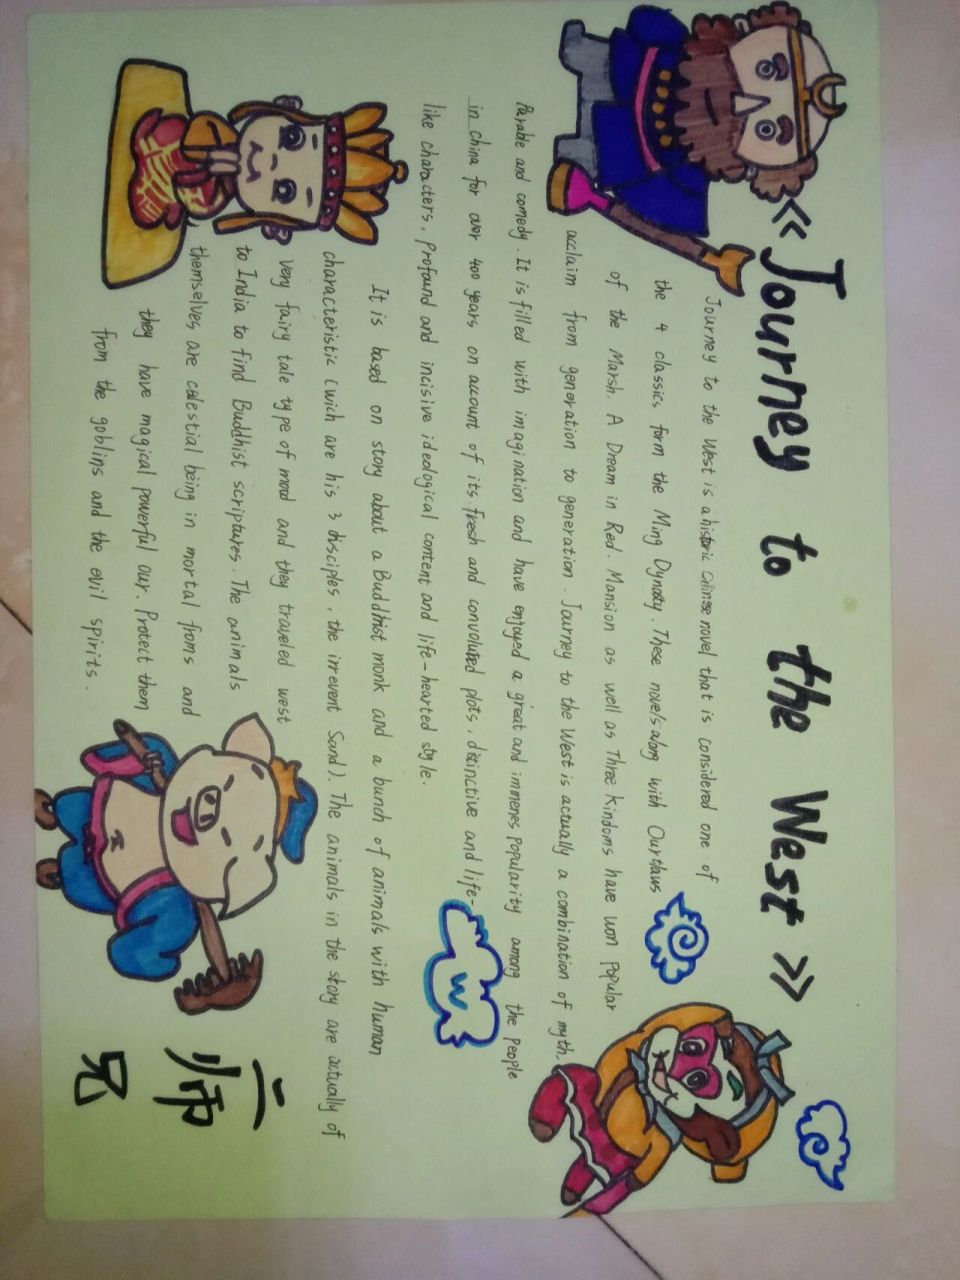 《Journey to the West》
Journey to the West is a historic chinese novel that is considered one of
the 4 classics form the Ming Dynasty. These novels along with Ourtlaws
of the Marsh, A Dream in Red. Mansion as well as Three kindoms have won popular
acclaim from generation to generation. Journey to the West is actually a combination of myth,
Parable and comedy. It is filled with imagination and have enjoyed a great and immenes popularity among the people
in china for over 400 years on account of its fresh and convoluted plots, distinctive and life-
like characters, Profound and incisive ideological content and life-hearted style.
It is based on story about a Buddhist monk and a bunch of animals with human
characteristic (wich are his 3 disciples, the irrevent Sand). The animals in the story are actually of
very fairy tale type of mood and they traveled west
to India to find Buddhist scriptures. The animals
themselves are celestial being in mortal froms and
they have magical powerful our. Protect them
from the goblins and the evil spirits.
二
师
兄